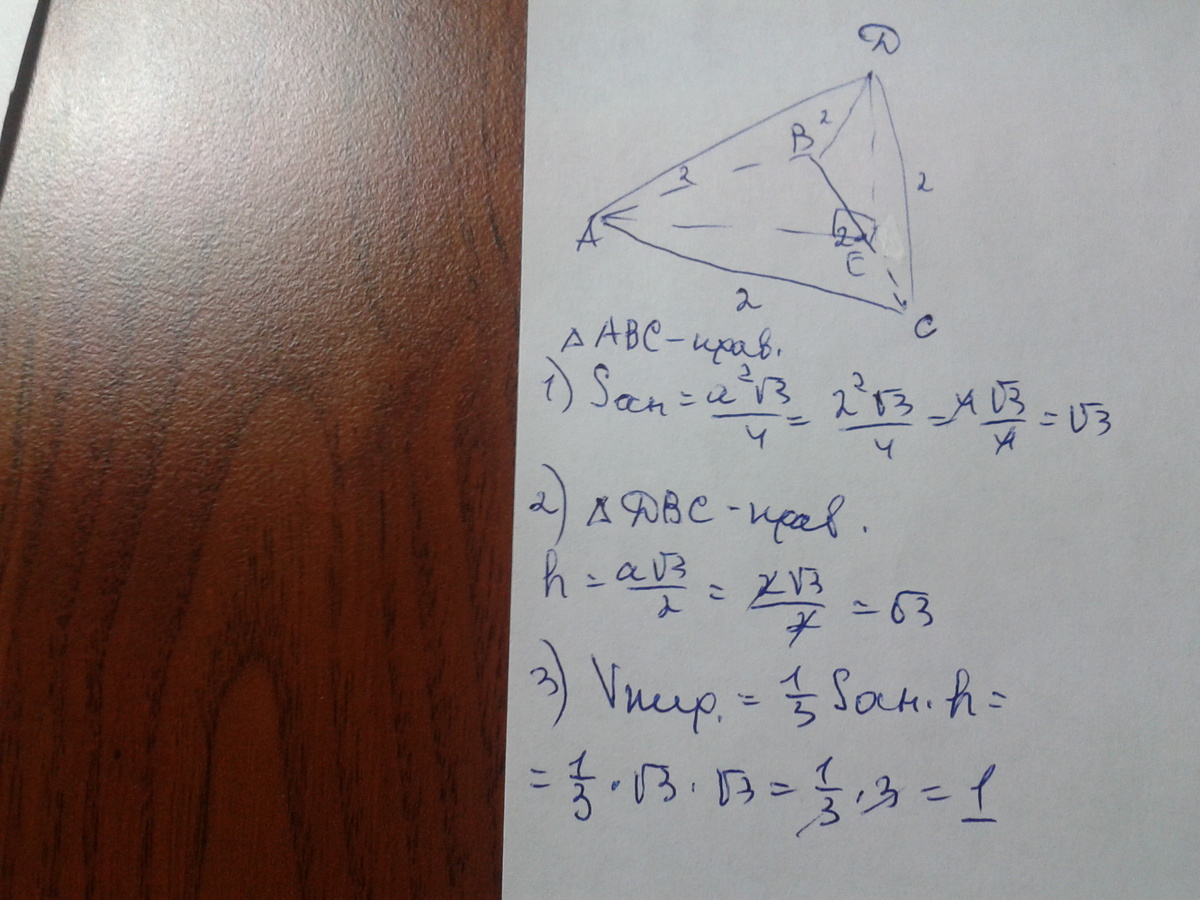 D
B 2
2
2
A
2
E
2
C
△ ABC - прав.
1) Sосн = a²√3/4 = 2²√3/4 = 4√3/4 = √3
2) △ DBC - прав.
h = a√3/2 = 2√3/2 = √3
3) Vпир. = 1/3 Sосн. h =
= 1/3 · √3 · √3 = 1/3 · 3 = 1